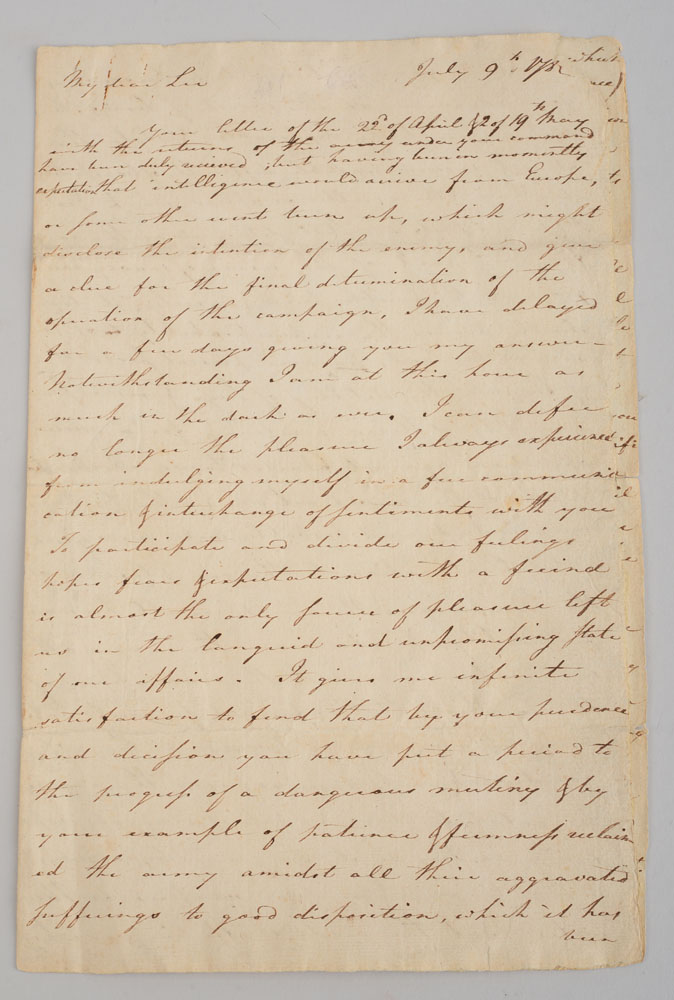 My dear Sir
July 9th
Your letters of the 22d of April & 2 of 19th May
with the returns of the army under your command
have been duly recieved, but having been in momently
expectation that intelligence would arrive from Europe,
or some other event turn up, which might
disclose the intention of the enemy, and give
a clue for the final determination of the
operation of the campaign, I have delayed
for a few days giving you my answer –
Notwithstanding I am at this hour as
much in the dark as ever. I can defer
no longer the pleasure I always experience
from indulging myself in a free communi
cation & interchange of sentiments with you
To participate and divide our feelings
hopes fears & expectations with a freind
is almost the only source of pleasure left
us in the languid and unpromising state
of our affairs. It gives me infinite
satisfaction to find that by your prudence
and decission you have put a period to
the progress of a dangerous mutiny & by
your example of patience & firmness reclaim
ed the army amidst all their aggravated
sufferings to good disposition, which it has
been